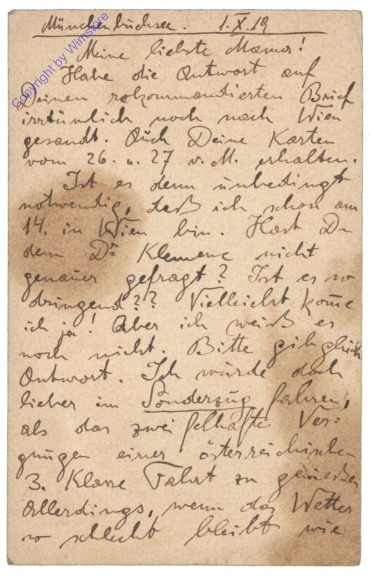 Münchenbuchsee. 1.X.19
Meine liebste Mama!
Habe die Antwort auf
Deinen rekommandierten Brief
irrtümlich noch nach Wien
gesandt. Auch Deine Karten
vom 26. u. 27 v. M. erhalten.
Ist es denn unbedingt
notwendig, daß ich schon am
14. in Wien bin. Hast Du
den Dr Klemenc nicht
genauer gefragt? Ist es so
dringend?? Vielleicht kom̅e
ich ja! Aber ich weiß es
noch nicht. Bitte gib gleich
Antwort. Ich würde doch
lieber im Sonderzug fahren,
als das zweifelhafte Ver=
gnügen einer österreichischen
3. Klasse Fahrt zu genießen
Allerdings, wenn das Wetter
so schlecht bleibt wie
Copyright by Winstore